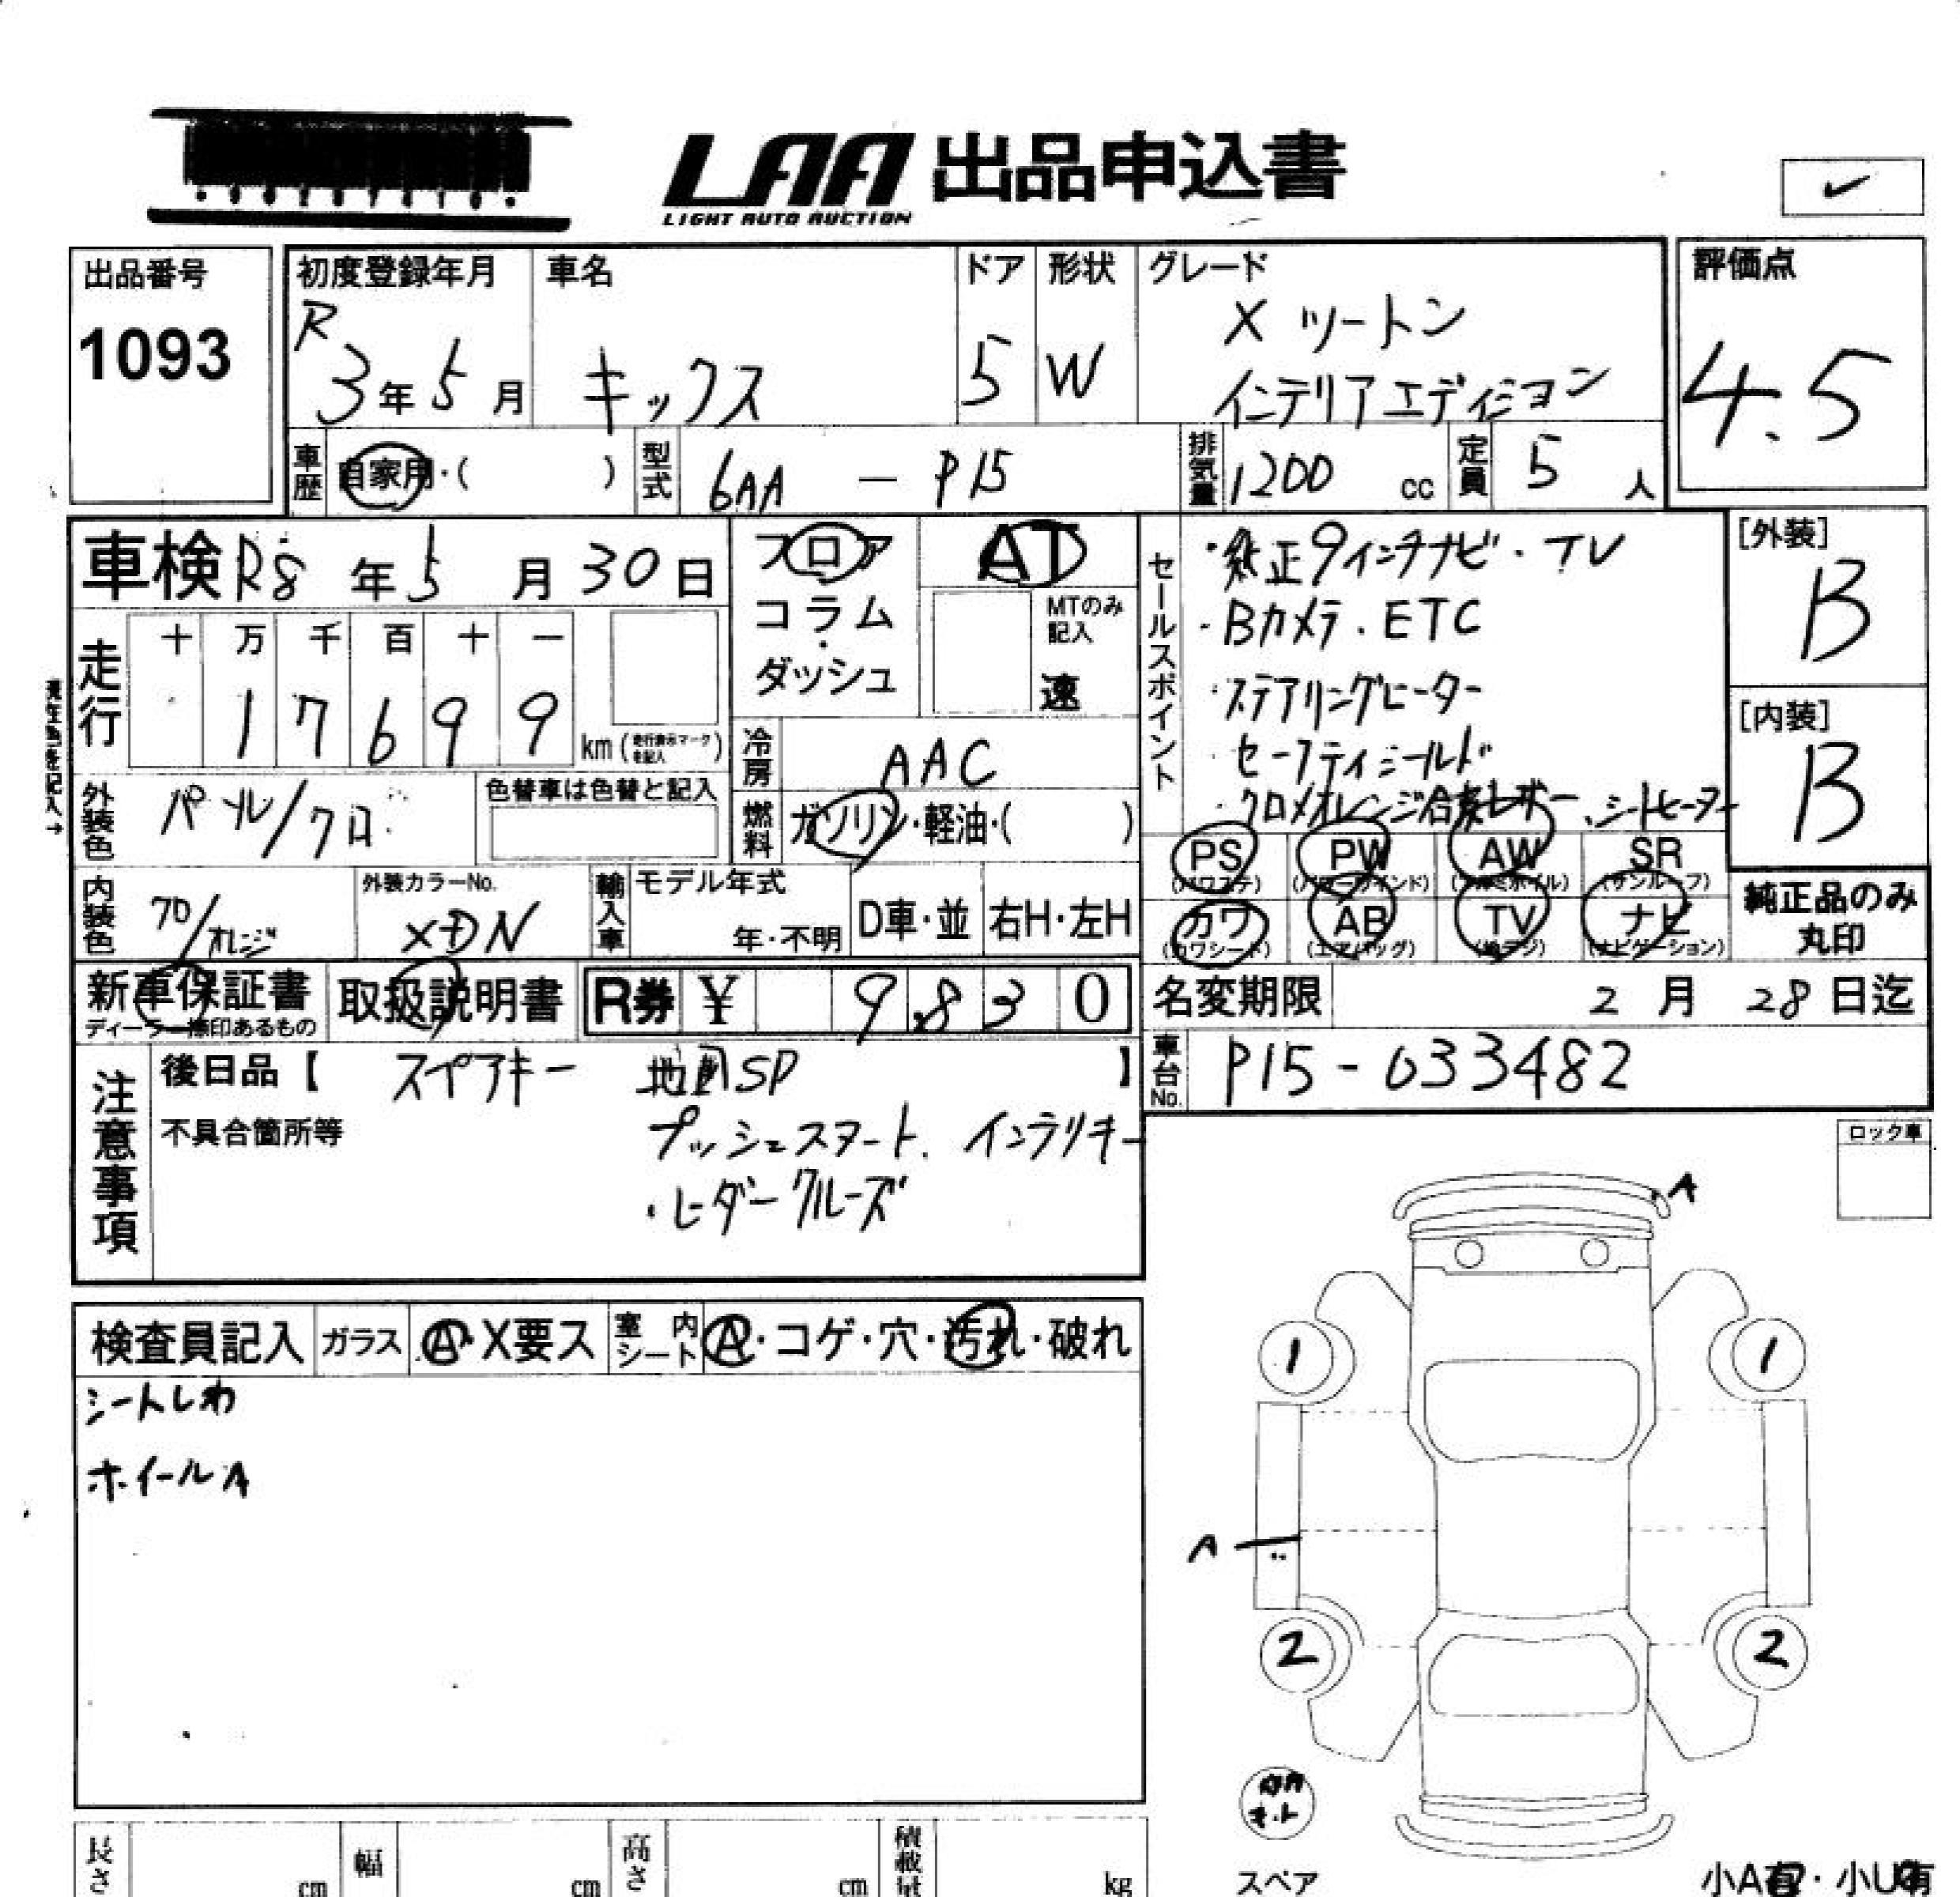 LAA 出品申込書
LIGHT AUTO AUCTION
✓
出品番号
1093
初度登録年月
R
3年5月
車名
キックス
ドア
5
形状
W
グレード
X ツートン
インテリアエディション
評価点
4.5
車歴
自家用・( )
型式
6AA — P15
排気量
1200 cc
定員
5 人
車検 R8 年 5 月 30 日
フロア
コラム
・
ダッシュ
AT
MTのみ
記入
速
セールスポイント
・純正9インチナビ・TV
・Bカメラ.ETC
・ステアリングヒーター
セーフティシールド
・クロ/オレンジ合皮レザー、シートヒーター
[外装]
B
[内装]
B
走行
十 万 千 百 十 一
1 7 6 9 9
km (走行表示マークを記入)
冷房
AAC
燃料
ガソリン・軽油・( )
外装色
パール/クロ
色替車は色替と記入
PS
(パワステ)
PW
(パワーウインド)
AW
(アルミホイル)
SR
(サンルーフ)
カワ
(カワシート)
AB
(エアバッグ)
TV
(地デジ)
ナビ
(ナビゲーション)
純正品のみ
丸印
内装色
クロ/オレンジ
外装カラーNo.
XDN
輸入車
モデル年式
年・不明
D車・並
右H・左H
新車保証書
ディーラー捺印あるもの
取扱説明書
R券 ¥ 9,830
名変期限 2 月 28 日迄
車台No.
P15-033482
注意事項
後日品【 スペアキー 地図SD 】
不具合箇所等
プッシュスタート、インテリキー
・レーダークルーズ
ロック車
A
検査員記入
ガラス
A・X要ス
室内シート
A・コゲ・穴・汚れ・破れ
シートしわ
ホイールA
1
1
A
2
2
スペア
小A有・小U有
長さ
cm
幅
cm
高さ
cm
積載量
kg